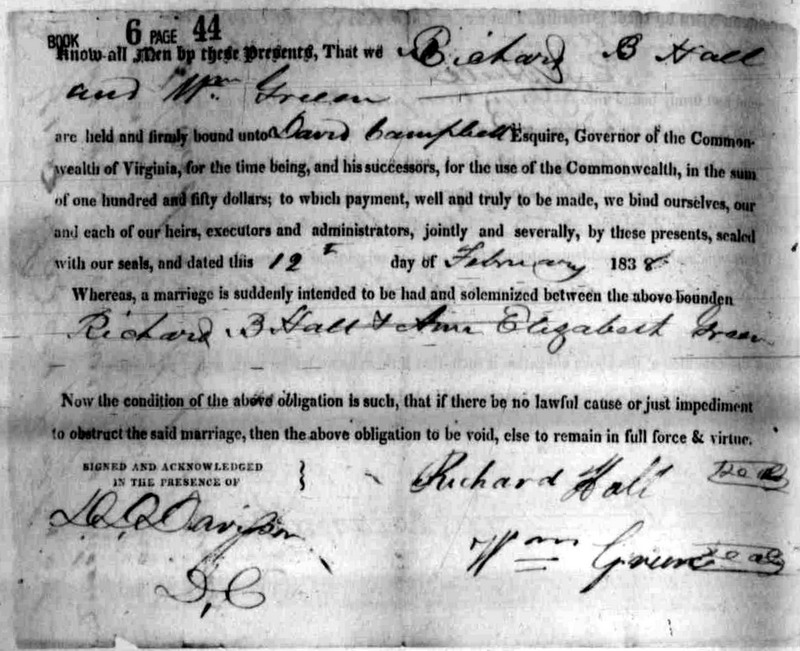 BOOK 6 PAGE 44
Know all Men by these Presents, That we Richard B Hall
and Wm Green
are held and firmly bound unto David Campbell Esquire, Governor of the Common-
wealth of Virginia, for the time being, and his successors, for the use of the Commonwealth, in the sum
of one hundred and fifty dollars; to which payment, well and truly to be made, we bind ourselves, our
and each of our heirs, executors and administrators, jointly and severally, by these presents, sealed
with our seals, and dated this 12th day of February 1838
Whereas, a marriage is suddenly intended to be had and solemnized between the above bounden
Richard B Hall & Ann Elizabeth Green
Now the condition of the above obligation is such, that if there be no lawful cause or just impediment
to obstruct the said marriage, then the above obligation to be void, else to remain in full force & virtue.
SIGNED AND ACKNOWLEDGED
IN THE PRESENCE OF
Richard Hall Seal
Davisson
Wm Green Seal
D, C